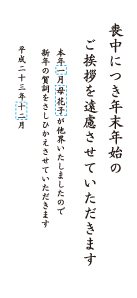 喪中につき年末年始の
ご挨拶を遠慮させていただきます
本年一月母花子が他界いたしましたので
新年の賀詞をさしひかえさせていただきます
平成二十三年十二月